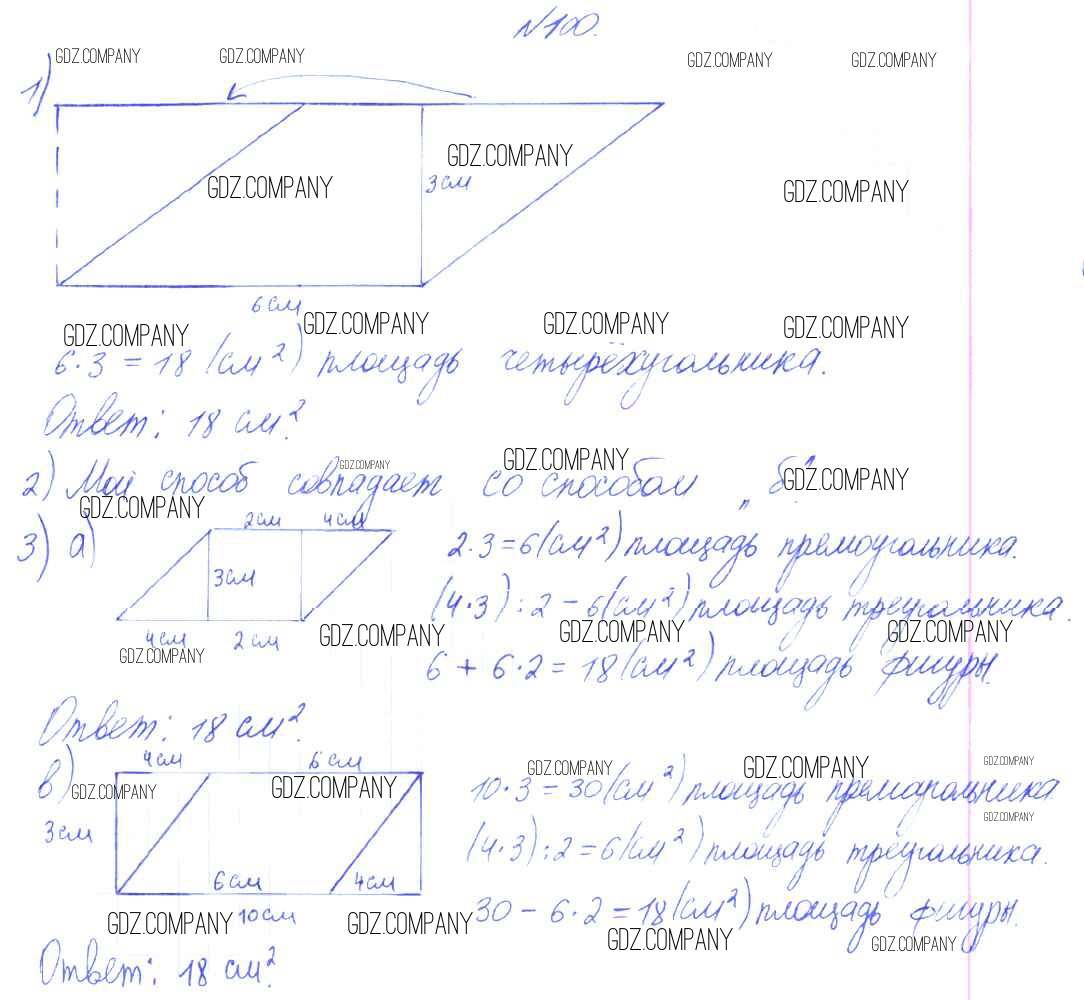 №100.
GDZ.COMPANY GDZ.COMPANY GDZ.COMPANY GDZ.COMPANY
1)
GDZ.COMPANY
3 см
GDZ.COMPANY GDZ.COMPANY
6 см
GDZ.COMPANY GDZ.COMPANY GDZ.COMPANY GDZ.COMPANY
6·3 = 18 (см²) площадь четырёхугольника.
Ответ: 18 см².
GDZ.COMPANY GDZ.COMPANY
2) Мой способ совпадает со способом „б“.
GDZ.COMPANY GDZ.COMPANY
3) а) 2 см 4 см
3 см
4 см 2 см
2·3=6(см²) площадь прямоугольника.
(4·3):2-6(см²) площадь треугольника.
GDZ.COMPANY GDZ.COMPANY GDZ.COMPANY
GDZ.COMPANY
6 + 6·2 = 18(см²) площадь фигуры.
Ответ: 18 см².
в) 4 см 6 см
GDZ.COMPANY GDZ.COMPANY GDZ.COMPANY GDZ.COMPANY GDZ.COMPANY
3 см
6 см 4 см
10 см
10·3=30(см²) площадь
GDZ.COMPANY
(4·3):2=6(см²) площадь треугольника.
30-6·2=18(см²) площадь фигуры.
GDZ.COMPANY GDZ.COMPANY GDZ.COMPANY GDZ.COMPANY
Ответ: 18 см².